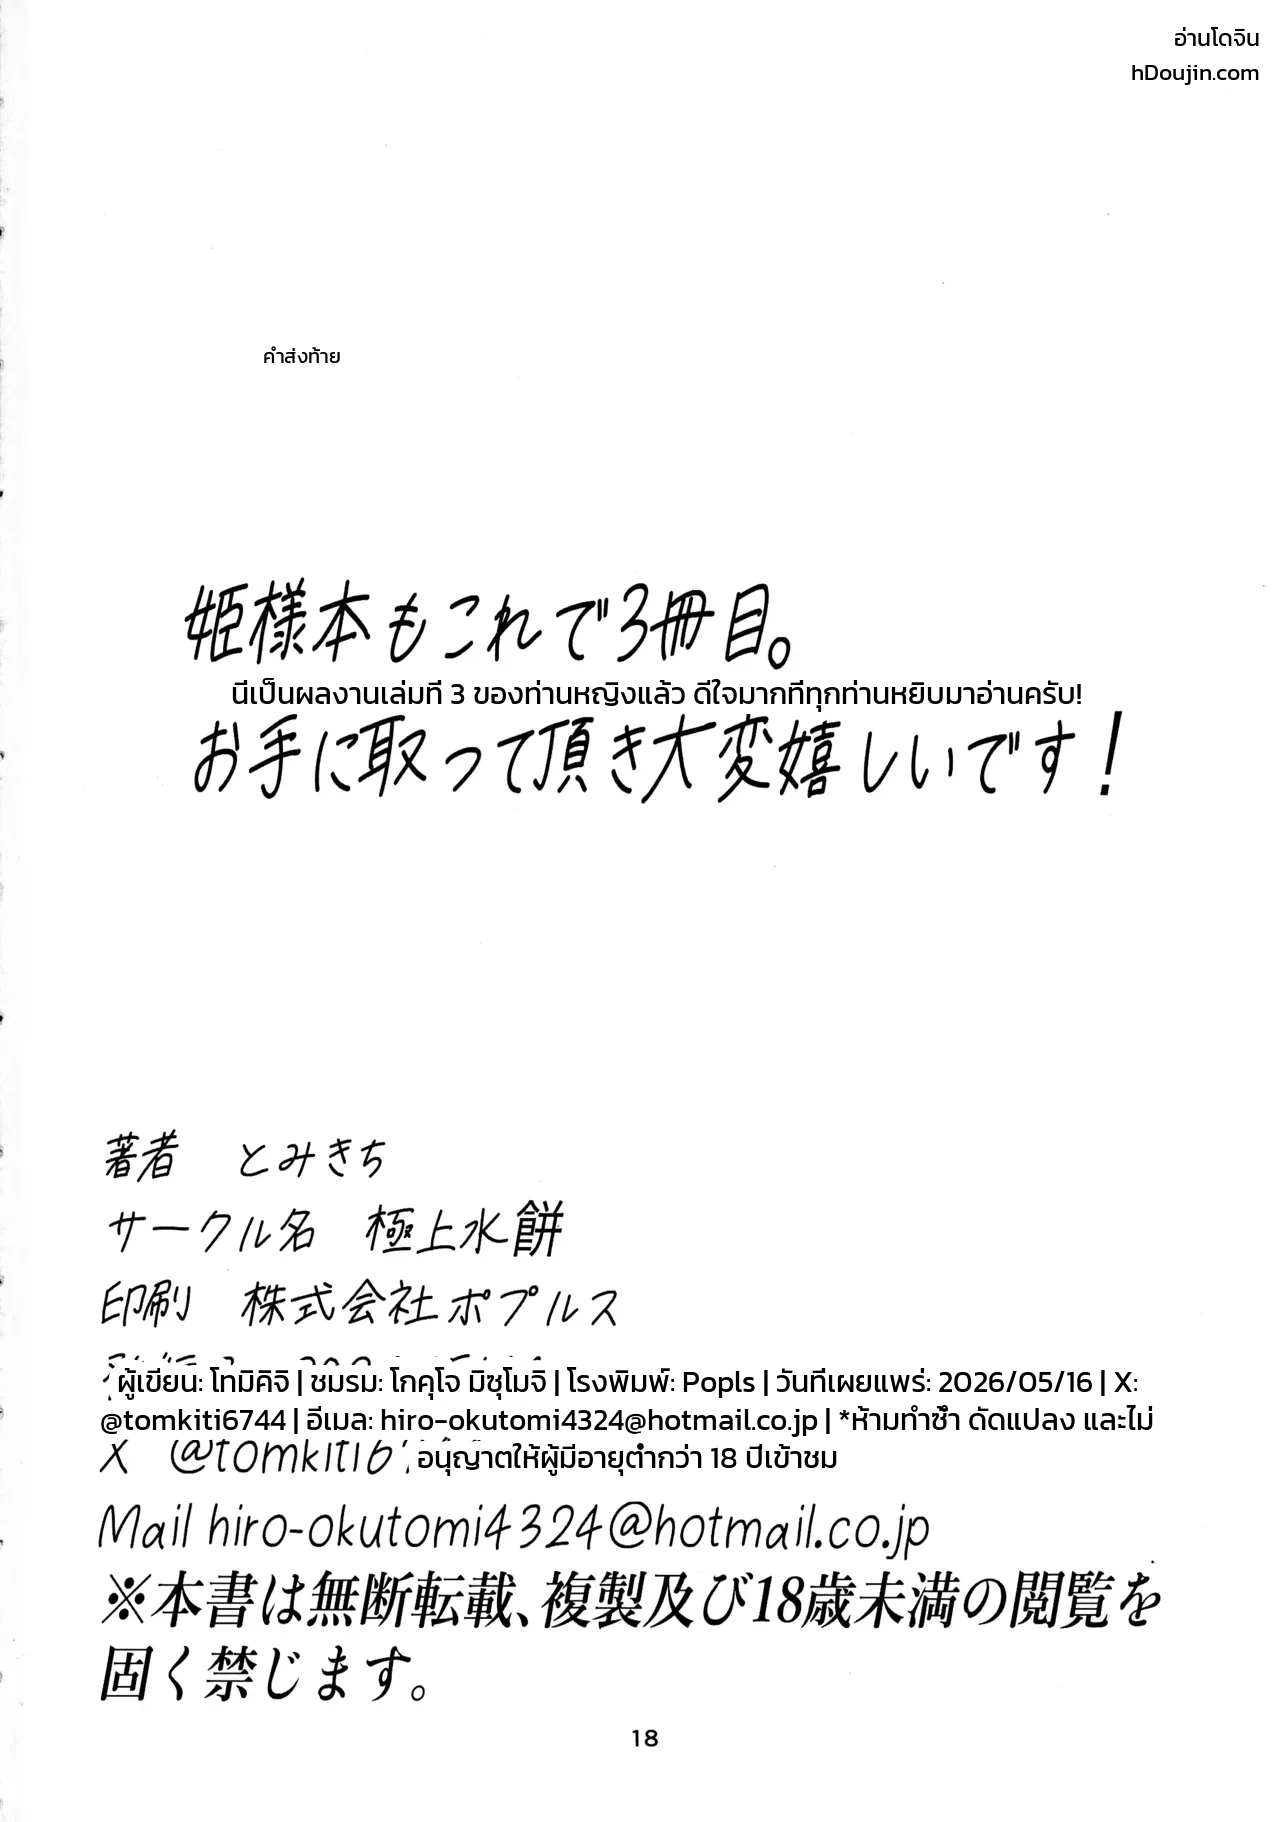 อ่านโดจิน
hDoujin.com
คำส่งท้าย
姫様本もこれで3冊目。
นี่เป็นผลงานเล่มที่ 3 ของท่านหญิงแล้ว ดีใจมากที่ทุกท่านหยิบมาอ่านครับ!
お手に取って頂き大変嬉しいです!
著者 とみきち
サークル名 極上水餅
印刷 株式会社ポプルス
ผู้เขียน: โทมิคิจิ | ชมรม: โกคุโจ มิซุโมจิ | โรงพิมพ์: Popls | วันที่เผยแพร่: 2026/05/16 | X:
@tomkiti6744 | อีเมล: hiro-okutomi4324@hotmail.co.jp | *ห้ามทำซ้ำ ดัดแปลง และไม่
อนุญาตให้ผู้มีอายุต่ำกว่า 18 ปีเข้าชม
X @tomkiti6
Mail hiro-okutomi4324@hotmail.co.jp
※本書は無断転載、複製及び18歳未満の閲覧を
固く禁じます。
18